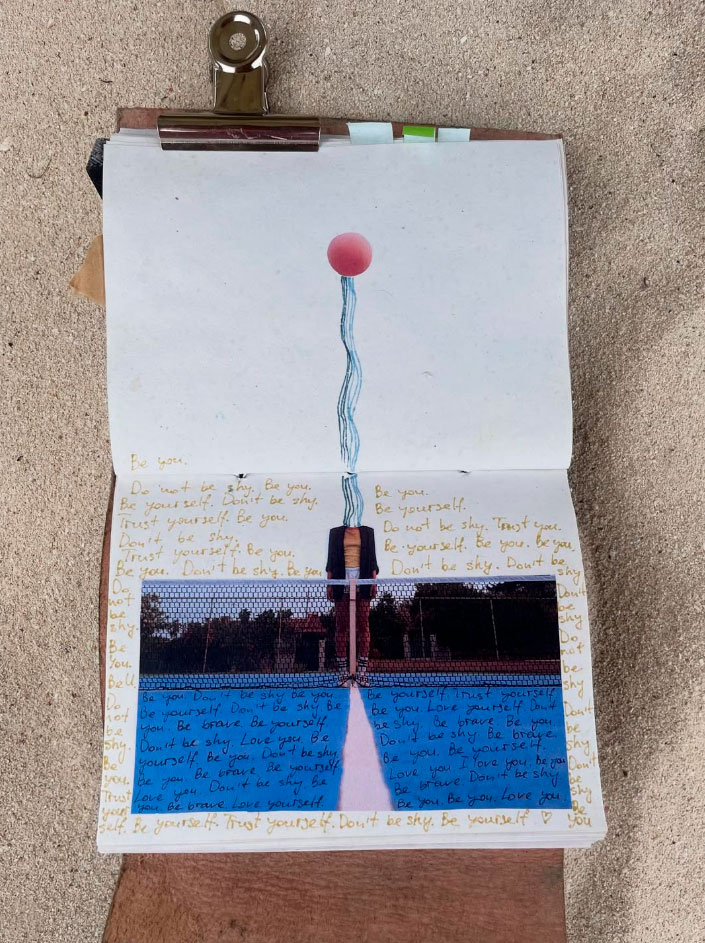 Be you.
Do not be shy. Be you.
Be yourself. Don't be shy.
Trust yourself. Be you.
Don't be shy.
Trust yourself. Be you.
Be you. Don't be shy. Be you
Be you.
Be yourself.
Do not be shy. Trust you.
Be yourself. Be you. Be you.
Don't be shy. Don't be shy
Do
not
be
shy.
Be
You.
Do
not
be
shy.
Be
you.
Trust
your
self. Be yourself. Trust yourself. Don't be shy. Be yourself ♡ you
Don't
be
shy
Do
not
be
shy
Don't
be
shy
Don't
be
shy.
Be
Be you Don't be shy Be you
Be yourself Don't be shy Be
you. Be brave Be yourself
Don't be shy Love you. Be
yourself Be you. Don't be shy
Be you. Be brave Be yourself
Love you. Don't be shy Be
you. Be brave Love yourself.
Be yourself Trust yourself
Be you. Love yourself Don't
be shy. Be brave Be you
Don't be shy Be brave.
Be you. Be yourself.
Love you I love you. Be you
Be brave Don't be shy
Be you. Be you. Love you.